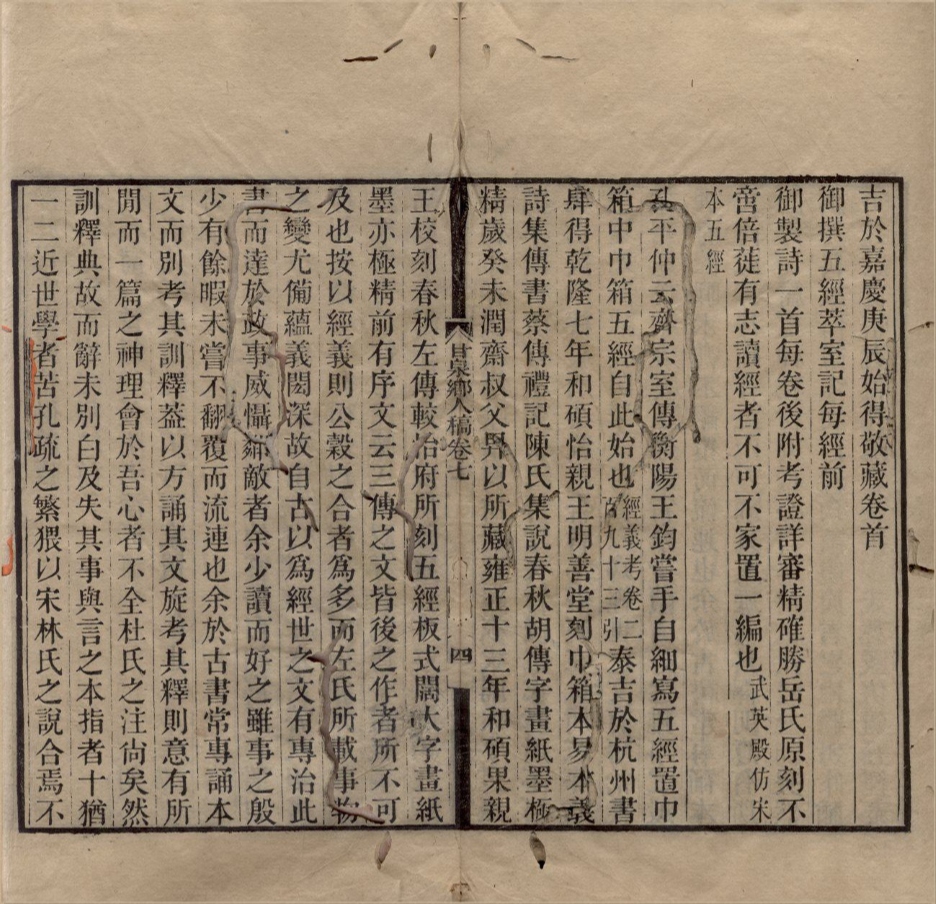 吉於嘉慶庚辰始得敬藏卷首
御撰五經萃室記每經前
御製詩一首每卷後附考證詳審精確勝岳氏原刻不
啻倍蓰有志讀經者不可不家置一編也武英殿仿宋
本五經
孔平仲云齊宗室傳衡陽王鈞嘗手自細寫五經置巾
箱中巾箱五經自此始也經義考卷二百九十三引泰吉於杭州書
肆得乾隆七年和碩怡親王明善堂刻巾箱本易本義
詩集傳書蔡傳禮記陳氏集說春秋胡傳字畫紙墨極
精歲癸未潤齋叔父畀以所藏雍正十三年和碩果親
甘泉鄉人稿卷七
四
王校刻春秋左傳較怡府所刻五經板式闊大字畫紙
墨亦極精前有序文云三傳之文皆後之作者所不可
及也按以經義則公穀之合者爲多而左氏所載事物
之變尤備蘊義閎深故自古以爲經世之文有專治此
書而達於政事威懾鄰敵者余少讀而好之雖事之殷
少有餘暇未嘗不翻覆而流連也余於古書常專誦本
文而別考其訓釋葢以方誦其文旋考其釋則意有所
閒而一篇之神理會於吾心者不全杜氏之注尙矣然
訓釋典故而辭未別白及失其事與言之本指者十猶
一二近世學者苦孔疏之繁猥以宋林氏之說合焉不